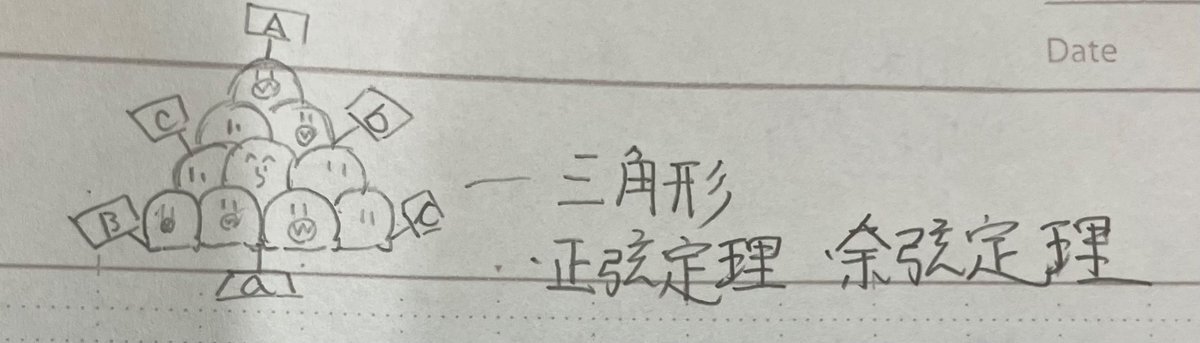 A
Date
c
b
B
C
a
一三角形
·正弦定理 余弦定理